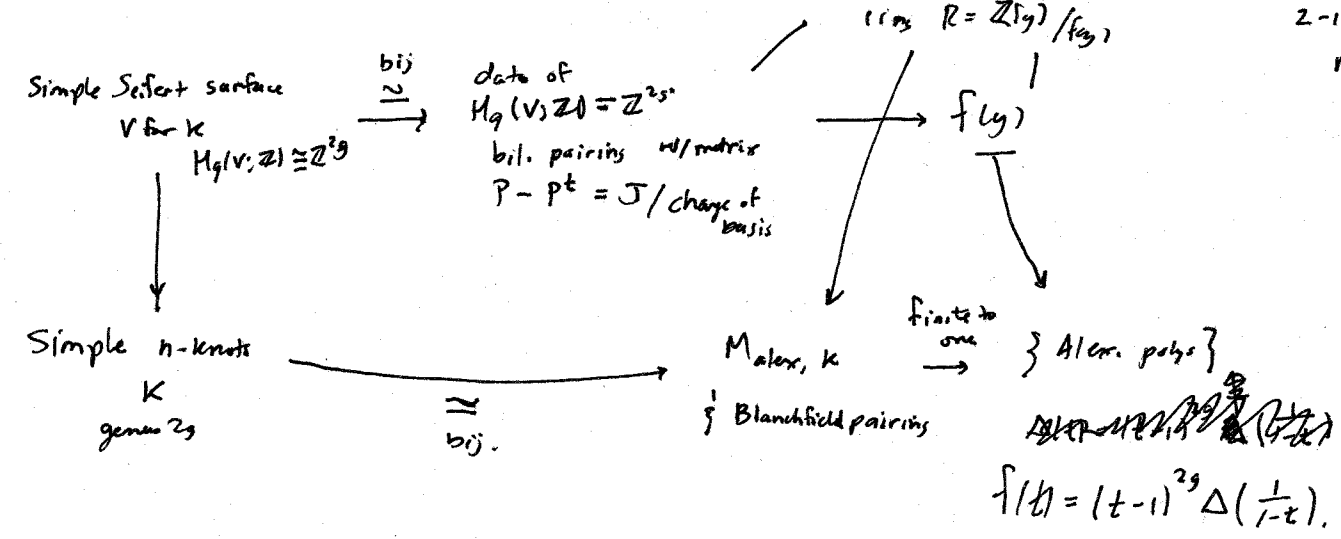 ring R = ℤ[y]/f(y)
2-1
Simple Seifert surface
V for K
H_q(V; ℤ) ≅ ℤ^{2g}
bij
≅
data of
H_q(V; ℤ) = ℤ^{2g}
bil. pairings w/ matrix
P - P^t = J / change of
basis
f(y)
Simple n-knots
K
genus 2g
≅
bij.
M_{alex, K}
& Blanchfield pairing
finite to
one
{ Alex. polys }
f(t) = (t-1)^{2g} Δ(1/(1-t)).